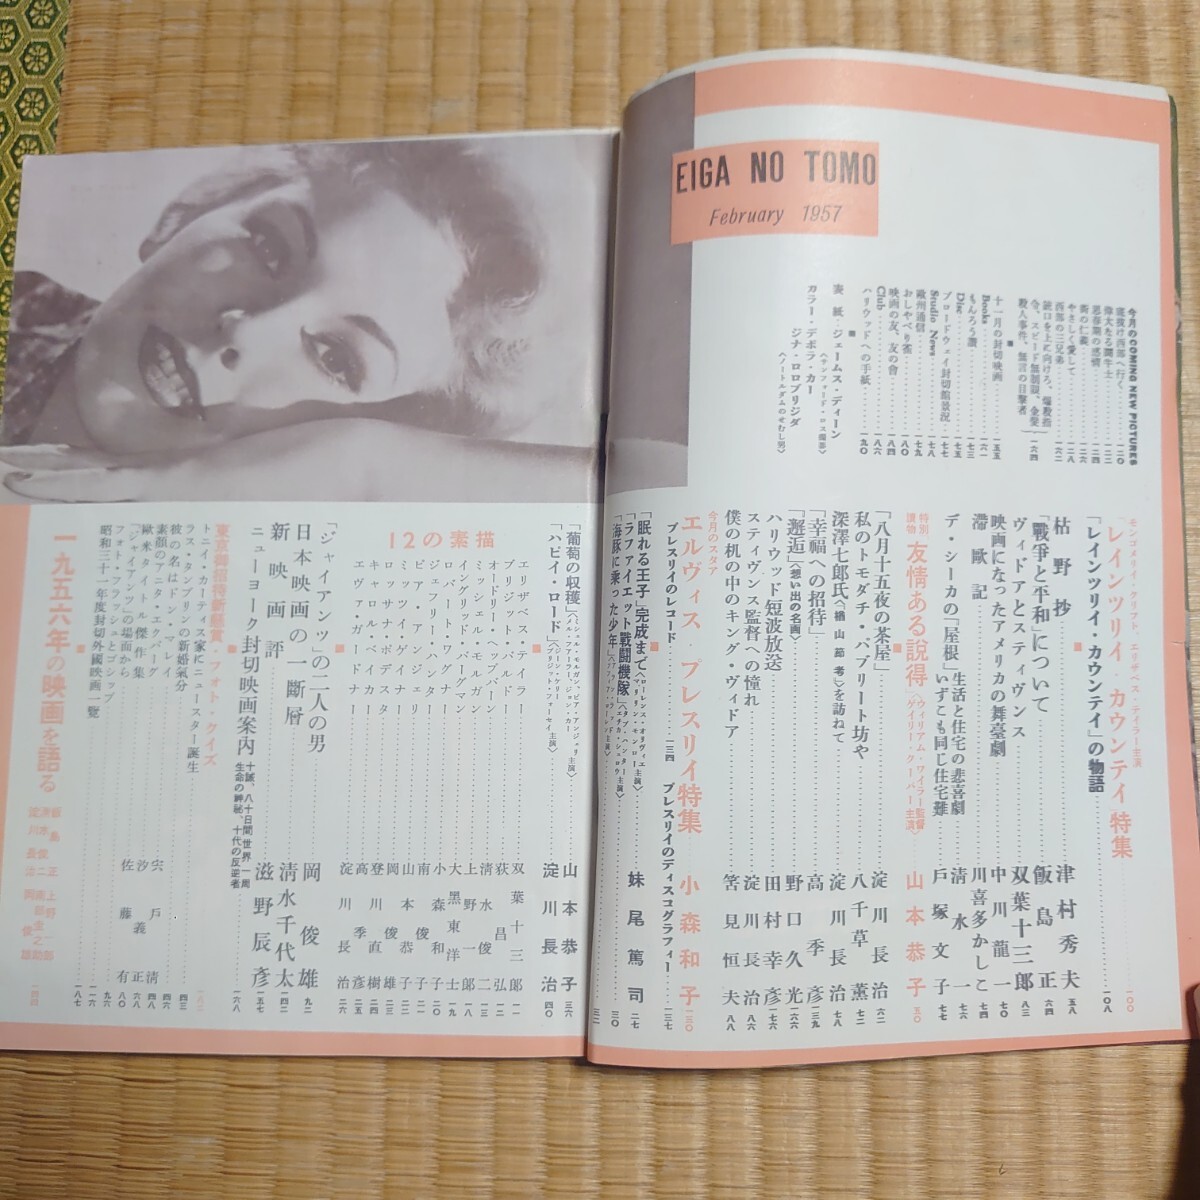 EIGA NO TOMO
February 1957
今月のCOMING NEW PICTURES
底抜け西部へ行く 一二〇
偉大なる闘牛士 一二二
思春期の感情 一二四
街の仁義 一二六
やさしく愛して 一二八
西部の三兄弟 一六二
殺人事件、無言の目撃者 一六四
十一月の封切映画 一五五
Books 一六一
もんろう讃 一七三
Disc 一七五
ブロードウェイ封切館景況 一七七
Studio News 一七八
欧州通信 一七九
おしゃべり雀 一八〇
映画の友、友の會 一八四
Club 一八六
ハリウッドへの手紙 一九〇
表紙・ジェームス・ディーン
〈サンフォード・ロス撮影〉
カラー・デボラ・カー
ジナ・ロロブリジダ
〈ノートルダムのせむし男〉
モンゴメリイ・クリフト、エリザベス・テイラー主演
レインツリイ・カウンテイ特集 一〇〇
「レインツリイ・カウンテイ」の物語 一〇八
枯野抄 津村秀夫 五八
「戰爭と平和」について 飯島正 六四
ヴィドアとスティヴンス 双葉十三郎 八三
映画になったアメリカの舞臺劇 中川龍一 七〇
滯歐記 川喜多かしこ 七四
デ・シーカの「屋根」 生活と住宅の悲喜劇 清水一 七六
いずこも同じ住宅難 戸塚文子 七七
特別讀物 友情ある説得 〈ウィリアム・ワイラー監督 ゲイリイ・クーパー主演〉 山本恭子 五〇
「八月十五夜の茶屋」 淀川長治 六二
私のトモダチ・パブリート坊や 八千草薫 七二
深澤七郎氏〈楢山節考〉を訪ねて 淀川長治 七八
「幸福への招待」 高季彦 一三九
「邂逅」〈想い出の名画〉 野口久光 一六六
ハリウッド短波放送 田村幸彦 一七六
スティヴンス監督への憧れ 淀川長治 八六
僕の机の中のキング・ヴィドア 筈見恒夫 八八
今月のスタア
エルヴィス・プレスリイ特集 小森和子 一三〇
プレスリイのレコード 一三四 プレスリイのディスコグラフィー 一三七
「眠れる王子」完成まで〈ローレンス・オリヴィエ マリリン・モンロー主演〉 妹尾篤司 二七
「ラファイエット戰闘機隊」〈タブ・ハンター エチカ・シュロウ主演〉 三〇
「海豚に乗った少年」 三二
「葡萄の収穫」〈ミシェル・モルガン、ピア・アンジェリ メル・ファーラー、ジョン・カー主演〉 山本恭子 三六
「ハピイ・ロード」〈ジーン・ケリー ブリジット・フォーセイ主演〉 淀川長治 四〇
12の素描
エリザベス・テイラー 双葉十三郎 一一
ブリジット・バルドー 荻昌弘 一二
オードリー・ヘップバーン 清水俊二 一三
ミッシェル・モルガン 上野一郎 一八
イングリッド・バーグマン 大黒東洋士 一九
ロバート・ワグナー 小森和子 二〇
ジェフリー・ハンター 南俊子 二一
ピア・アンジェリ 山本恭子 二二
ミッツイ・ゲイナー 岡俊雄 二三
キャロル・ベイカー 登川直樹 二四
ロッサナ・ポデスタ 高季彦 二五
エヴァ・ガードナー 淀川長治 二六
「ジャイアンツ」の二人の男 岡俊雄 九二
日本映画の一斷層 清水千代太 一四二
新映画評 滋野辰彦 一五七
ニューヨーク封切映画案内 十誡、八十日間世界一周 生命の神秘、十代の反逆者 一六八
東京都招待新懸賞 フォト・クイズ 一八二
トニイ・カーティス家にニュースター誕生 四三
ラス・タンブリンの新婚氣分 四六
彼の名はドン・マレイ 宍戸清 四八
素顔のアニタ・エクバーグ
歐米タイトル傑作集 汐義正
「ジャイアンツ」の場面から 八〇
フォト・フラッシュとゴシップ 佐藤有 一一六
昭和三十一年度封切外國映画一覧 一八七
一九五六年の映画を語る 飯島正 清水俊二 淀川長治 上野一郎 南部圭之助 岡俊雄 一四四